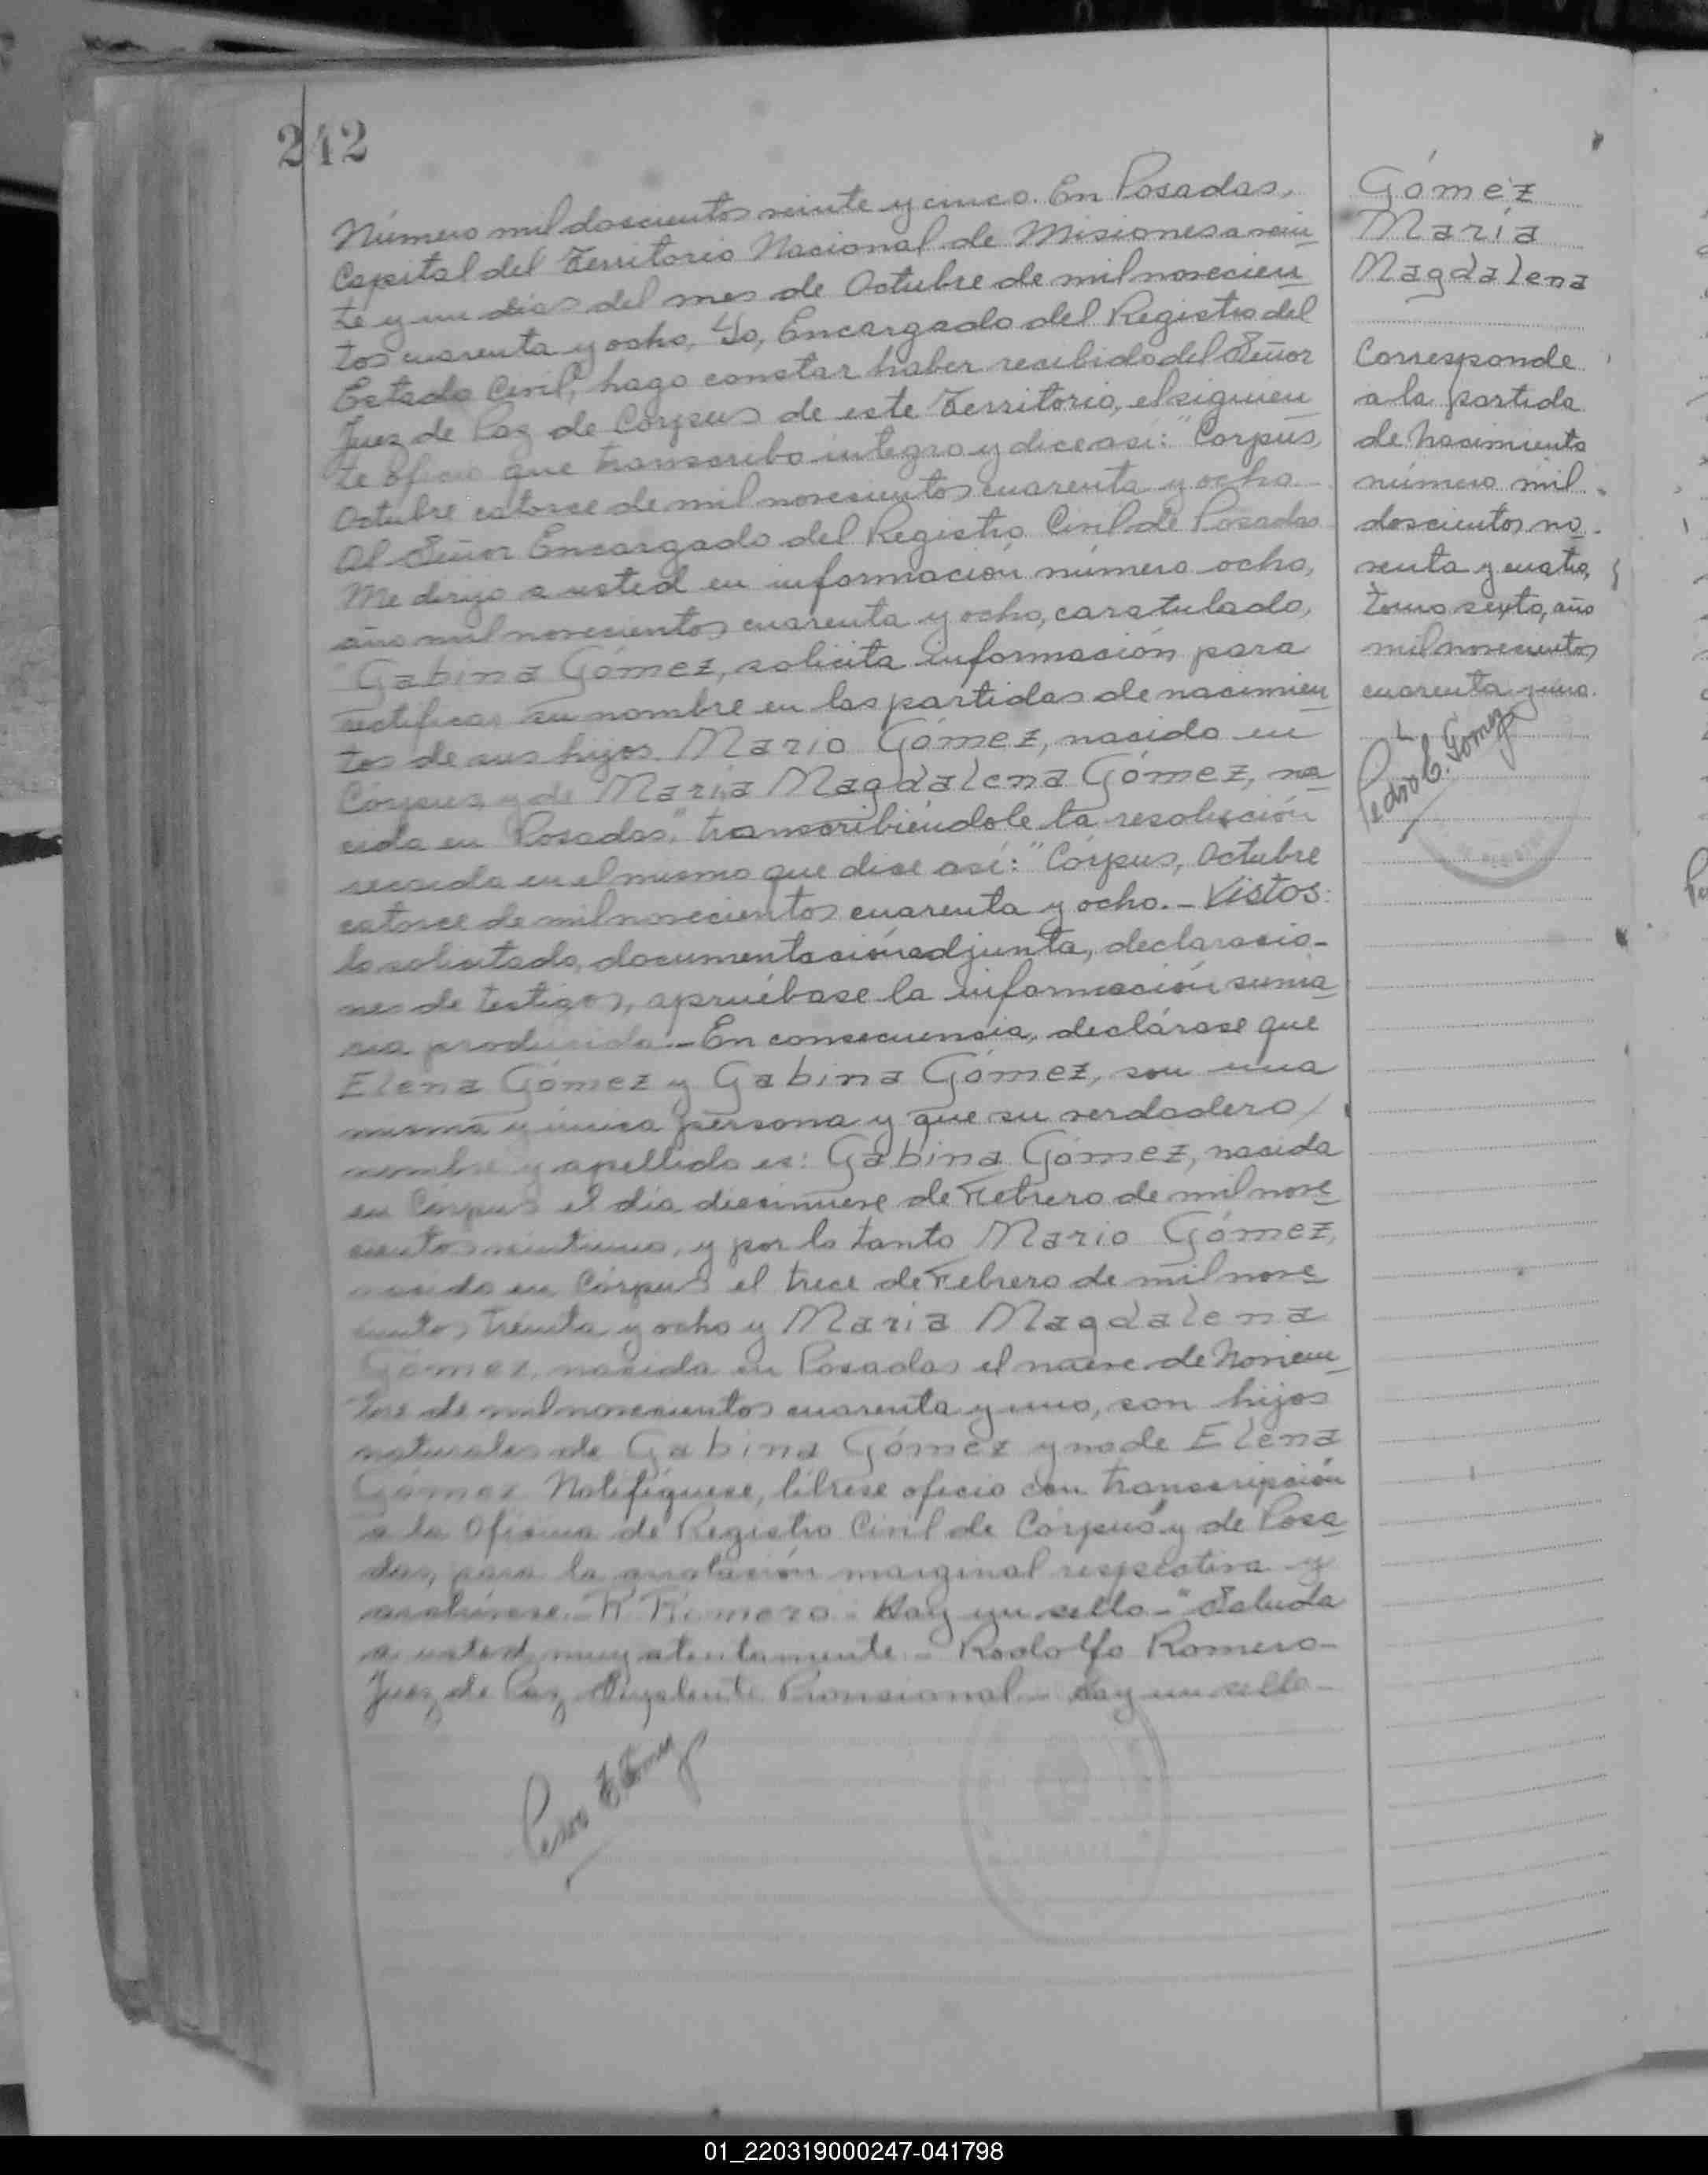 242
Número mil doscientos veinte y cinco. En Posadas,
Capital del Territorio Nacional de Misiones a vein
te y un dias del mes de Octubre de mil novecien
tos cuarenta y ocho, Yo, Encargado del Registro del
Estado Civil, hago constar haber recibido del Señor
Juez de Paz de Corpus de este Territorio, el siguien
te oficio que transcribo integro y dice asi: "Corpus,
Octubre catorce de mil novecientos cuarenta y ocho -
Al Señor Encargado del Registro Civil de Posadas
Me dirijo a usted en información número ocho,
año mil novecientos cuarenta y ocho, caratulado,
"Gabina Gómez, solicita información para
rectificar su nombre en las partidas de nacimien
tos de sus hijos Mario Gómez, nacido en
Corpus y de María Magdalena Gómez, na
cida en Posadas," transcribiéndole la resolución
recaida en el mismo que dice así: "Corpus, Octubre
catorce de mil novecientos cuarenta y ocho. - Vistos:
lo solicitado, documentación adjunta, declaracio-
nes de testigos, apruébase la información suma
ria producida. - En consecuencia, declárase que
Elena Gómez y Gabina Gómez, son una
misma y única persona y que su verdadero
nombre y apellido es: Gabina Gómez, nacida
en Corpus el día diecinueve de Febrero de mil nove
cientos veintiuno, y por lo tanto Mario Gómez,
nacido en Corpus el trece de Febrero de mil nove
cientos treinta y ocho y Maria Magdalena
Gómez, nacida en Posadas el nueve de Noviem
bre de mil novecientos cuarenta y uno, son hijos
naturales de Gabina Gómez y no de Elena
Gómez. Notifíquese, líbrese oficio con transcripción
a la Oficina de Registro Civil de Corpus y de Posa
das, para la anotación marginal respectiva y
archívese. - R. Romero - Hay un sello - "Saluda
a usted muy atentamente - Rodolfo Romero -
Juez de Paz Suplente Provisional - Hay un sello -
Gómez
María
Magdalena
Corresponde
a la partida
de nacimiento
número mil
doscientos no
venta y cuatro,
tomo sexto, año
mil novecientos
cuarenta y uno.
Pedro E. Gómez
Pedro E. Gómez
01_220319000247-041798